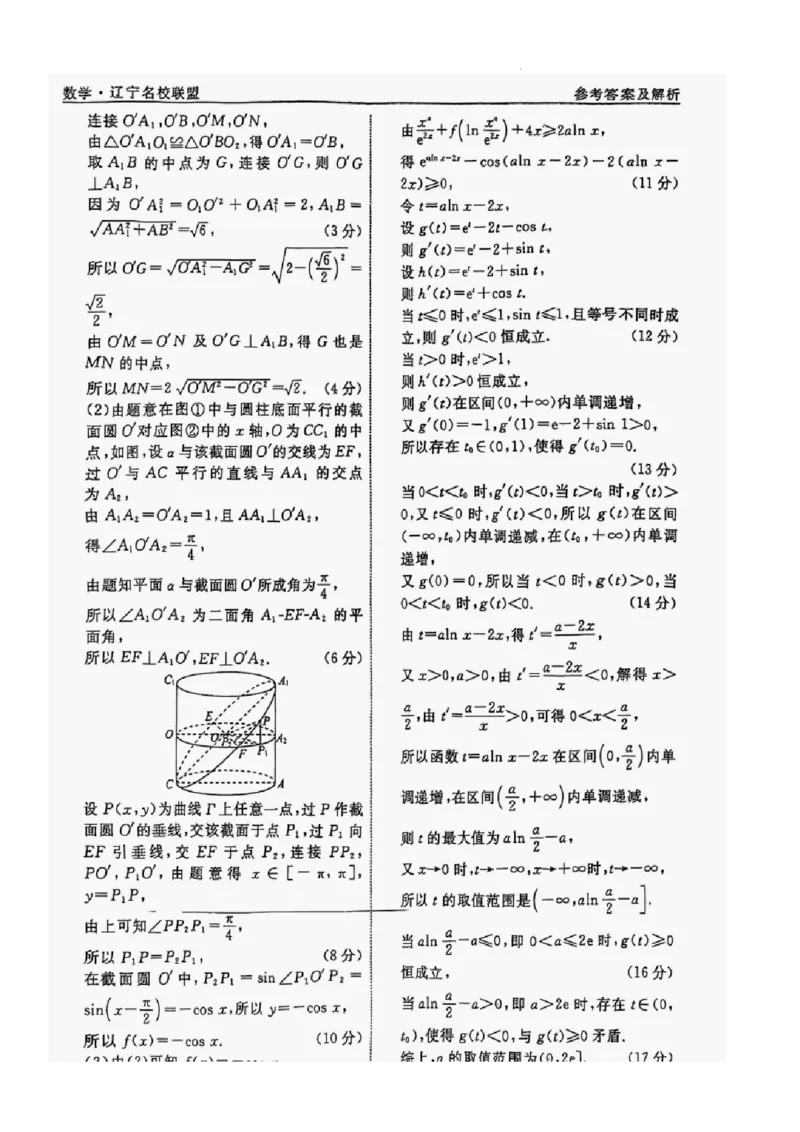 数学·辽宁名校联盟
参考答案及解析
连接 O′A₁,O′B,O′M,O′N,
由△O′A₁O₁≌△O′BO₂,得O′A₁=O′B,
取 A₁B 的中点为 G,连接 O′G,则 O′G
⊥A₁B,
因为 O′A₁² = O₁O′² + O₁A₁² = 2, A₁B =
√(AA₁²+AB²)=√6, (3分)
所以 O′G=√(O′A₁²−A₁G²)=√(2−(√6/2)²)=
√2/2,
由 O′M=O′N 及 O′G⊥A₁B,得 G 也是
MN 的中点,
所以 MN=2√(O′M²−O′G²)=√2. (4分)
(2)由题意在图①中与圆柱底面平行的截
面圆 O′对应图②中的 x 轴,O为 CC₁ 的中
点,如图,设 α 与该截面圆 O′的交线为 EF,
过 O′与 AC 平行的直线与 AA₁ 的交点
为 A₂,
由 A₁A₂=O′A₂=1,且 AA₁⊥O′A₂,
得∠A₁O′A₂=π/4,
由题知平面 α 与截面圆 O′所成角为π/4,
所以∠A₁O′A₂ 为二面角 A₁-EF-A₂ 的平
面角,
所以 EF⊥A₁O′,EF⊥O′A₂. (6分)
C₁
A₁
E
P
O
O′
P₂
A₂
F
P₁
C
A
设 P(x,y)为曲线 Γ 上任意一点,过 P 作截
面圆 O′的垂线,交该截面于点 P₁,过 P₁ 向
EF 引垂线,交 EF 于点 P₂,连接 PP₂,
PO′, P₁O′, 由题意得 x∈[−π,π],
y=P₁P,
由上可知∠PP₂P₁=π/4,
所以 P₁P=P₂P₁, (8分)
在截面圆 O′ 中, P₂P₁ = sin∠P₁O′P₂ =
sin(x−π/2)=−cos x,所以 y=−cos x,
所以 f(x)=−cos x. (10分)
(3)由(2)可知 f(x)=−cos x
由xᵃ/e²ˣ+f(ln xᵃ/e²ˣ)+4x≥2aln x,
得 e^(aln x−2x)−cos(aln x−2x)−2(aln x−
2x)≥0, (11分)
令 t=aln x−2x,
设 g(t)=eᵗ−2t−cos t,
则 g′(t)=eᵗ−2+sin t,
设 h(t)=eᵗ−2+sin t,
则 h′(t)=eᵗ+cos t.
当 t≤0 时,eᵗ≤1,sin t≤1,且等号不同时成
立,则 g′(t)<0 恒成立. (12分)
当 t>0 时,eᵗ>1,
则 h′(t)>0 恒成立,
则 g′(t)在区间(0,+∞)内单调递增,
又 g′(0)=−1,g′(1)=e−2+sin 1>0,
所以存在 t₀∈(0,1),使得 g′(t₀)=0.
(13分)
当 0<t<t₀ 时,g′(t)<0,当 t>t₀ 时,g′(t)>
0,又 t≤0 时,g′(t)<0,所以 g(t)在区间
(−∞,t₀)内单调递减,在(t₀,+∞)内单调
递增,
又 g(0)=0,所以当 t<0 时,g(t)>0,当
0<t<t₀ 时,g(t)<0. (14分)
由 t=aln x−2x,得 t′=(a−2x)/x,
又 x>0,a>0,由 t′=(a−2x)/x<0,解得 x>
a/2,由 t′=(a−2x)/x>0,可得 0<x<a/2,
所以函数 t=aln x−2x 在区间(0,a/2)内单
调递增,在区间(a/2,+∞)内单调递减,
则 t 的最大值为 aln a/2−a,
又 x→0 时,t→−∞,x→+∞时,t→−∞,
所以 t 的取值范围是(−∞,aln a/2−a].
当 aln a/2−a≤0,即 0<a≤2e 时,g(t)≥0
恒成立, (16分)
当 aln a/2−a>0,即 a>2e 时,存在 t∈(0,
t₀),使得 g(t)<0,与 g(t)≥0 矛盾.
综上,a 的取值范围为(0,2e]. (17分)